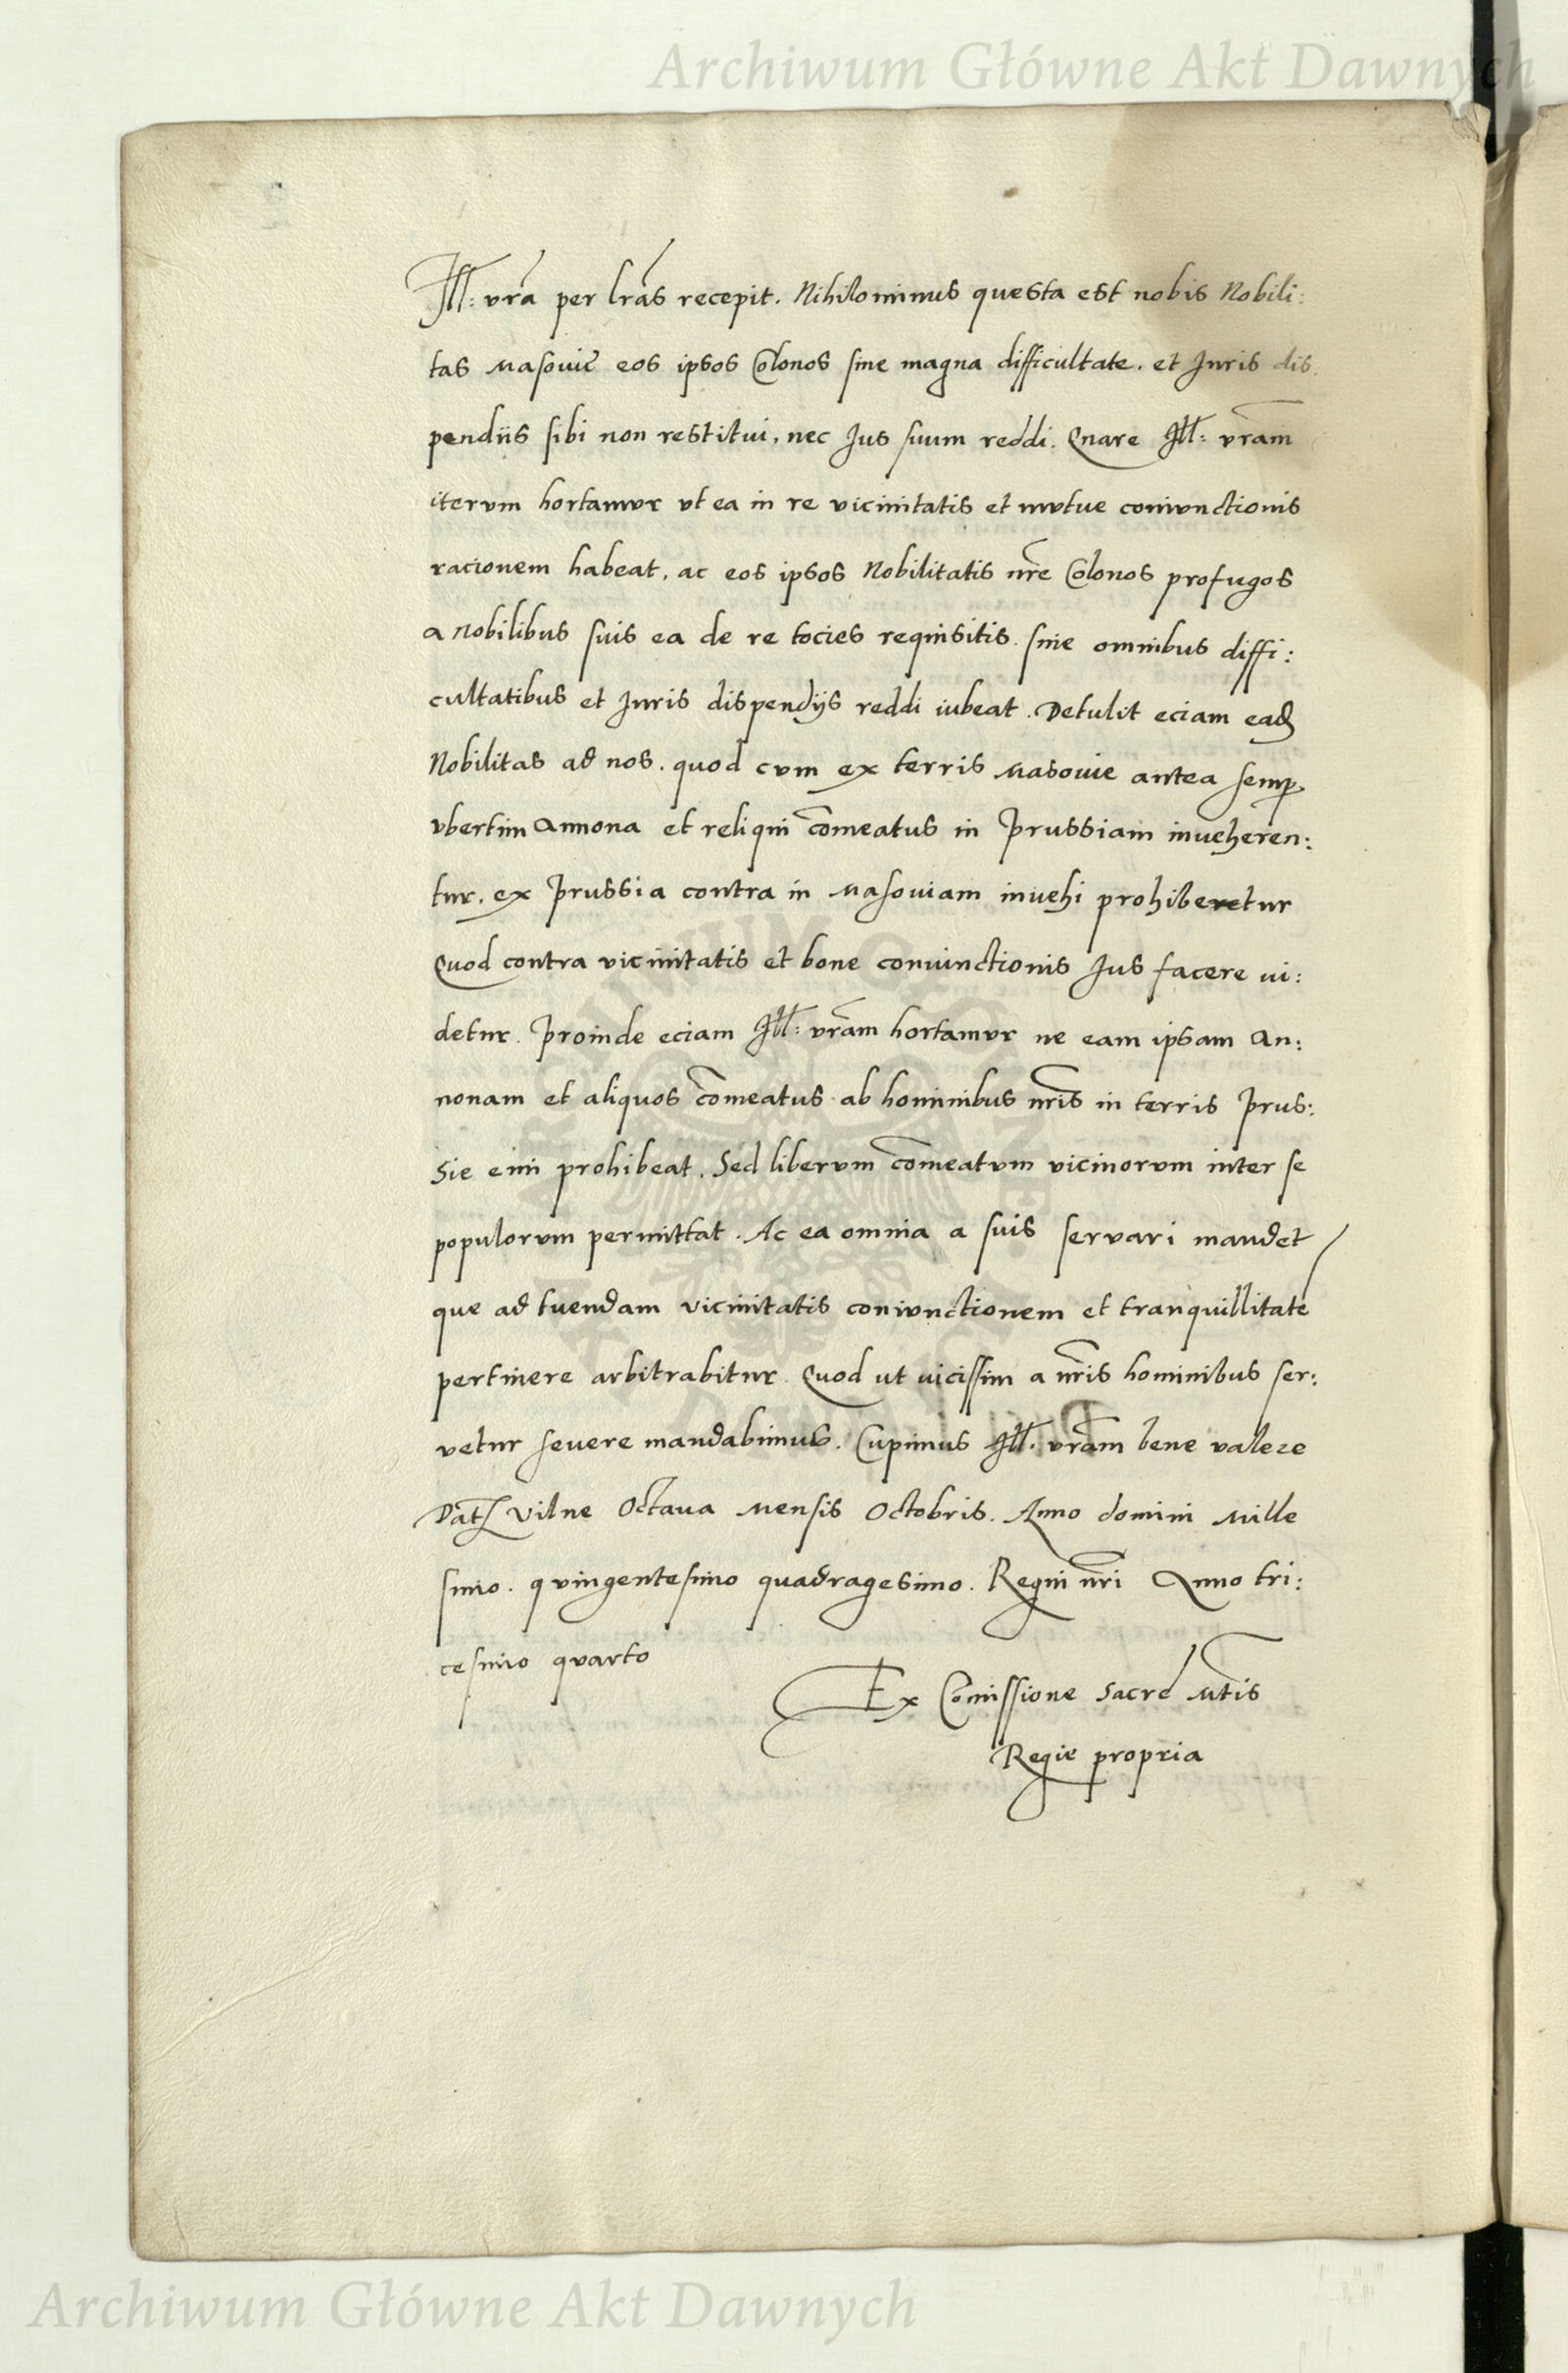 Archiwum Główne Akt Dawnych
Ill: vra per lras recepit. Nihilominus questa est nobis Nobili:
tas Masovie eos ipsos Colonos sine magna difficultate. et Iuris dis:
pendiis sibi non restitui, nec Ius suum reddi. Quare Ill: vram
iterum hortamur ut ea in re vicinitatis et mutue coniunctionis
racionem habeat, ac eos ipsos Nobilitatis nre Colonos profugos
a nobilibus suis ea de re tocies requisitis. sine omnibus diffi:
cultatibus et Iuris dispendijs reddi iubeat. Detulit eciam ead
Nobilitas ad nos. quod cum ex terris Masovie antea semp
vbertim Annona et reliqui comeatus in Prussiam inveheren:
tur. ex Prussia contra in Masoviam invehi prohiberetur
Quod contra vicinitatis et bone coniunctionis Ius facere vi:
detur. Proinde eciam Ill: vram hortamur ne eam ipsam An:
nonam et aliquos comeatus ab hominibus nris in terris Prus:
sie emi prohibeat. Sed liberum comeatum vicinorum inter se
populorum permittat. Ac ea omnia a suis servari mandet
que ad tuendam vicinitatis coniunctionem et tranquillitate
pertinere arbitrabitur. Quod ut vicissim a nris hominibus ser:
vetur severe mandabimus. Cupimus Ill: vram bene valere
Dat Vilne Octava Mensis Octobris. Anno domini Mille
simo. quingentesimo quadragesimo. Regni nri Anno tri:
cesimo quarto
Ex Comissione Sacre Mtis
Regie propria
Archiwum Główne Akt Dawnych